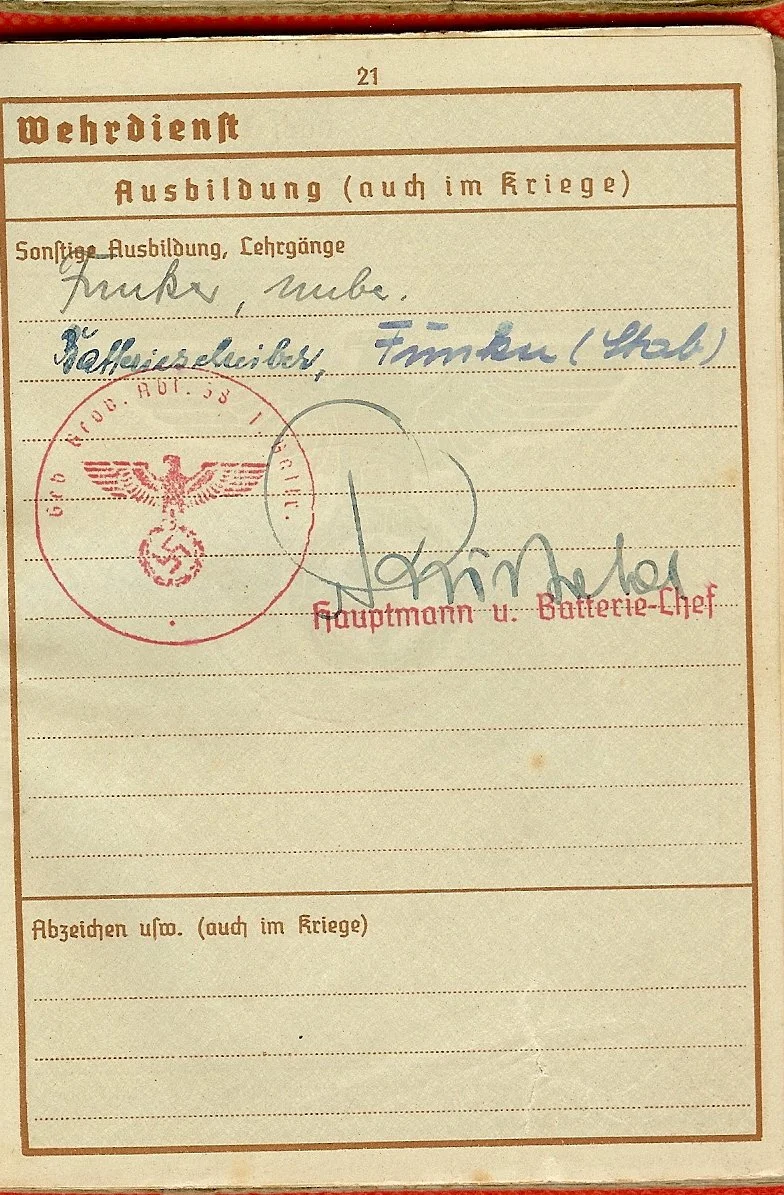 21
Wehrdienst
Ausbildung (auch im Kriege)
Sonstige Ausbildung, Lehrgänge
Funker,
Batterieschreiber, Funker (Stab)
Abt. 38
Hauptmann u. Batterie-Chef
Abzeichen usw. (auch im Kriege)